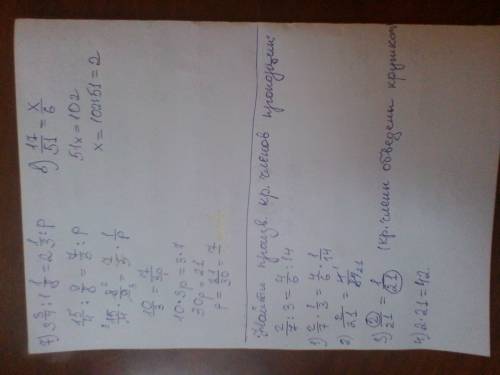 7) 3 3/4 : 1 1/8 = 2 1/3 : p
15/4 : 9/8 = 7/3 : p
15/4 · 8/9 = 7/3 · 1/p
10 · 3p = 3 · 7
30p = 21
p = 21/30 =
8) 17/51 = x/6
51x = 102
x = 102:51 = 2
Найти произв. кр. членов пропорции:
2/7 : 3 = 4/6 : 14
1) 2/7 · 1/3 = 4/6 · 1/14
2) 2/21 = 4/84 21
3) 2/21 = 1/21 (кр. члены обведены кружком
4) 2·21=42.